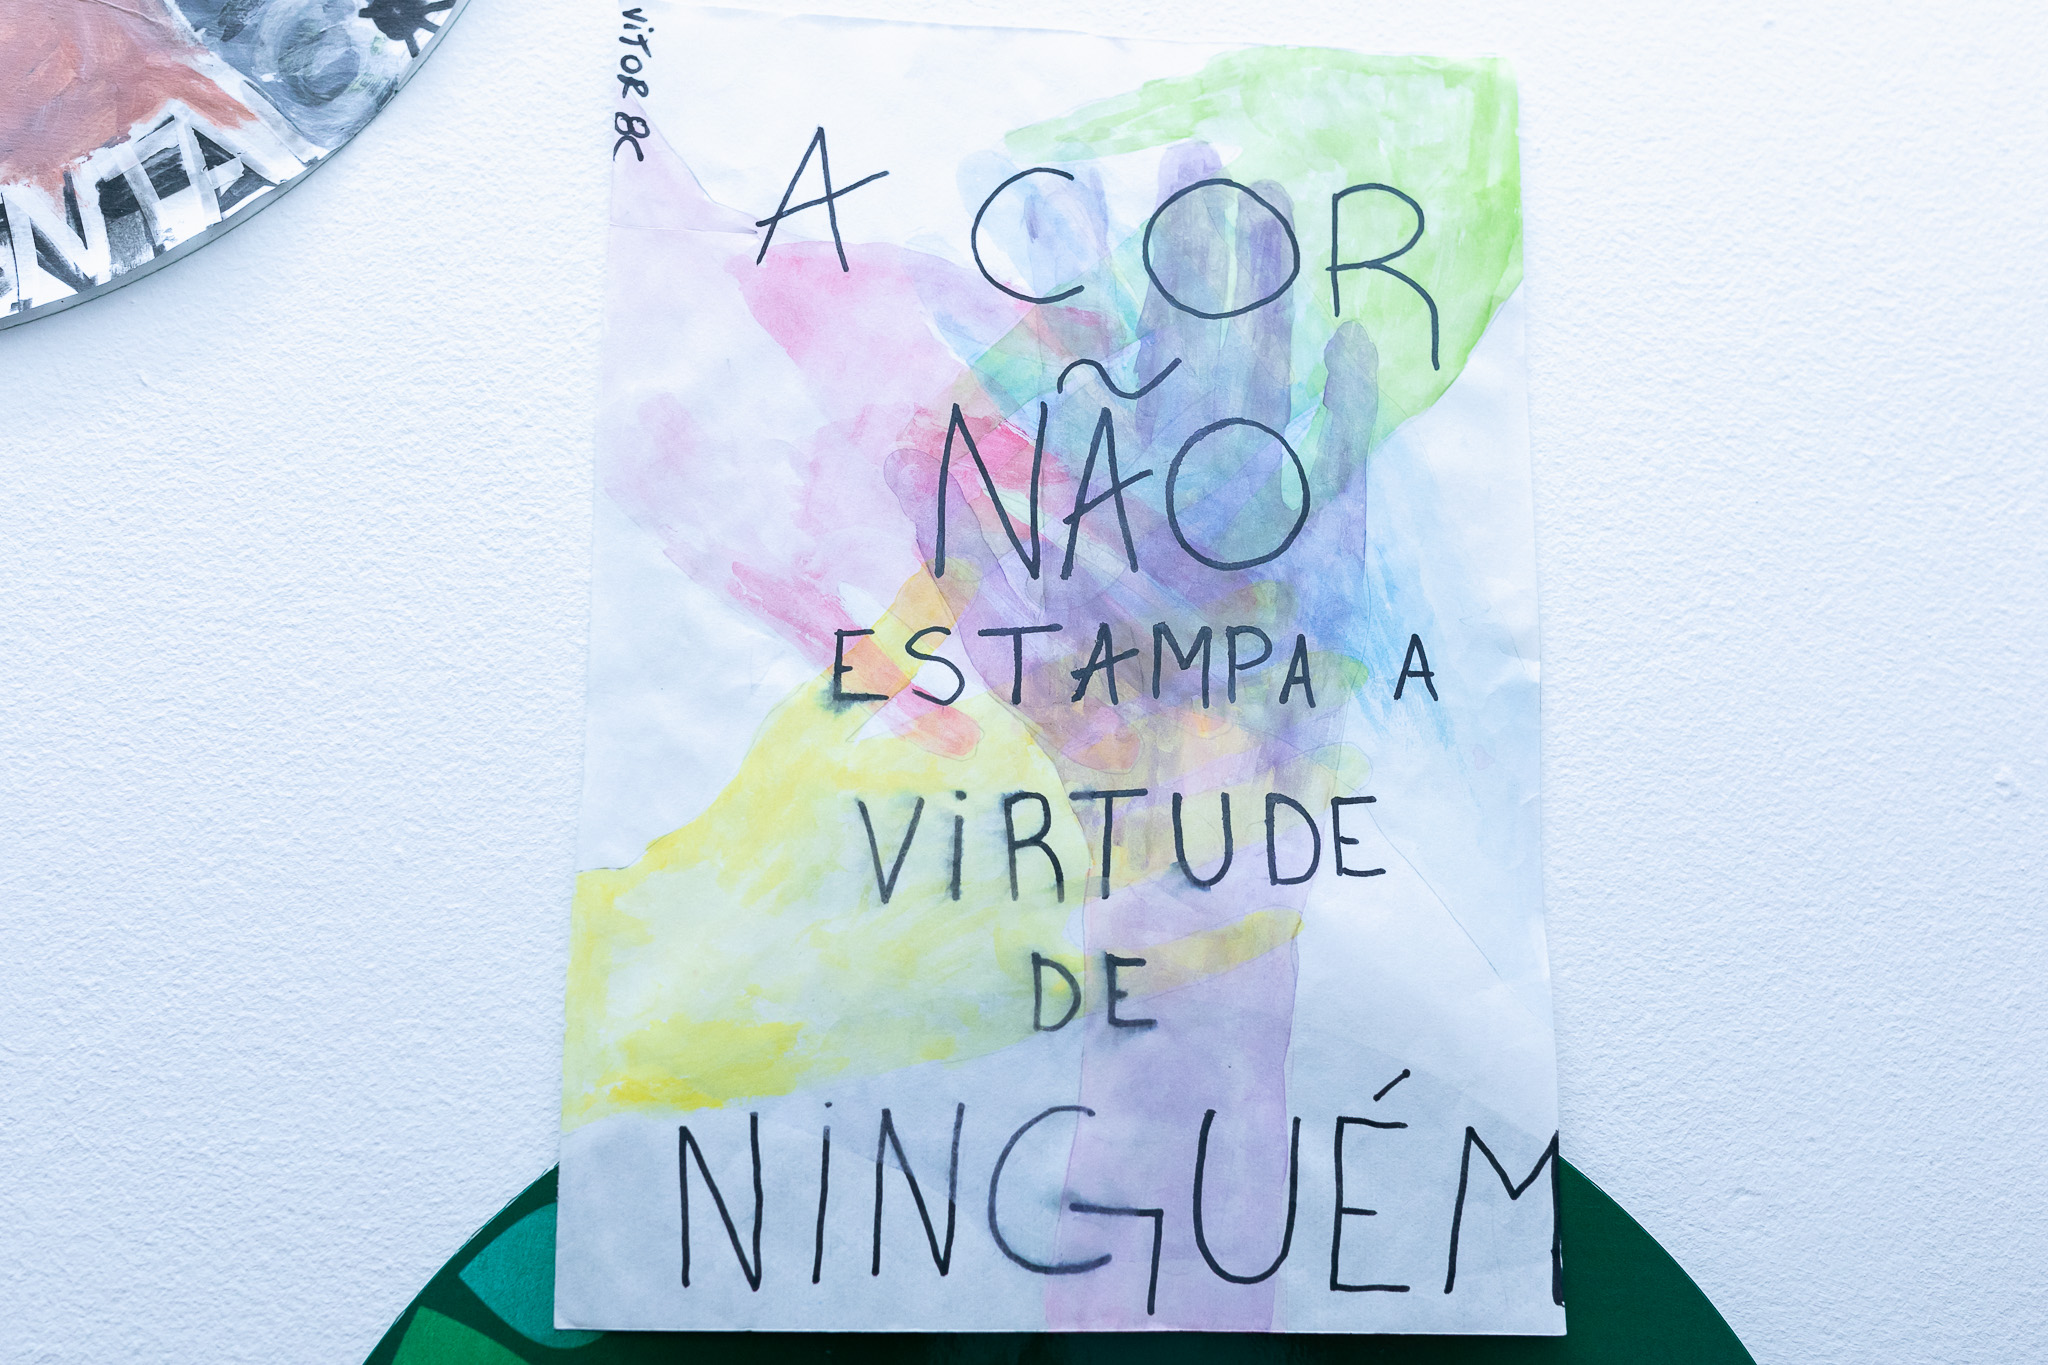 VITOR 8C
A COR
NÃO
ESTAMPA A
VIRTUDE
DE
NINGUÉM